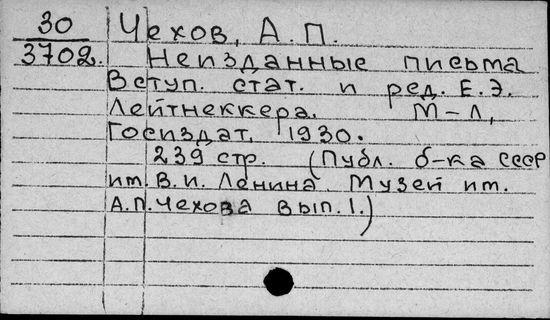 30 Чехов, А.П.
3702. Неизданные письма
Вступ. стат. и ред. Е.Э.
Лейтнеккера. М-Л,
Госиздат, 1930.
239 стр. (Публ. б-ка СССР
им. В.И. Ленина. Музей им.
А.П. Чехова вып. 1.)